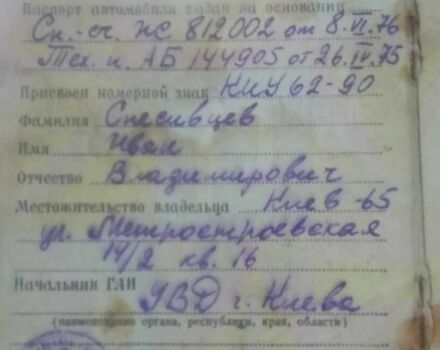 Паспорт автомобиля выдан на основании
Сп.-сч. ЖС 812002 от 8.VI.76
Тех. п. АБ 144905 от 26.IV.75
Присвоен номерной знак КИУ 62-90
Фамилия Спесивцев
Имя Иван
Отчество Владимирович
Местожительство владельца Киев-65
ул. Метростроевская
14/2 кв. 16
Начальник ГАИ УВД г. Киева
(наименование органа, республики, края, области)